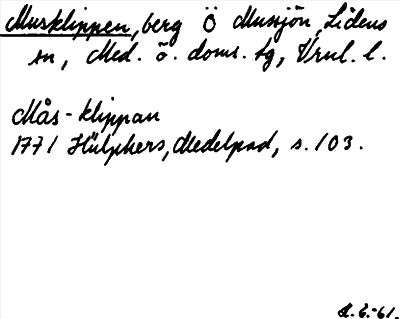 Musklippen, berg Ö Mussjön, Lidens
sn, Med. ö. doms. tg, Vnl. l.
Mås-klippan
1771 Hülphers, Medelpad, s. 103.
E.-61.